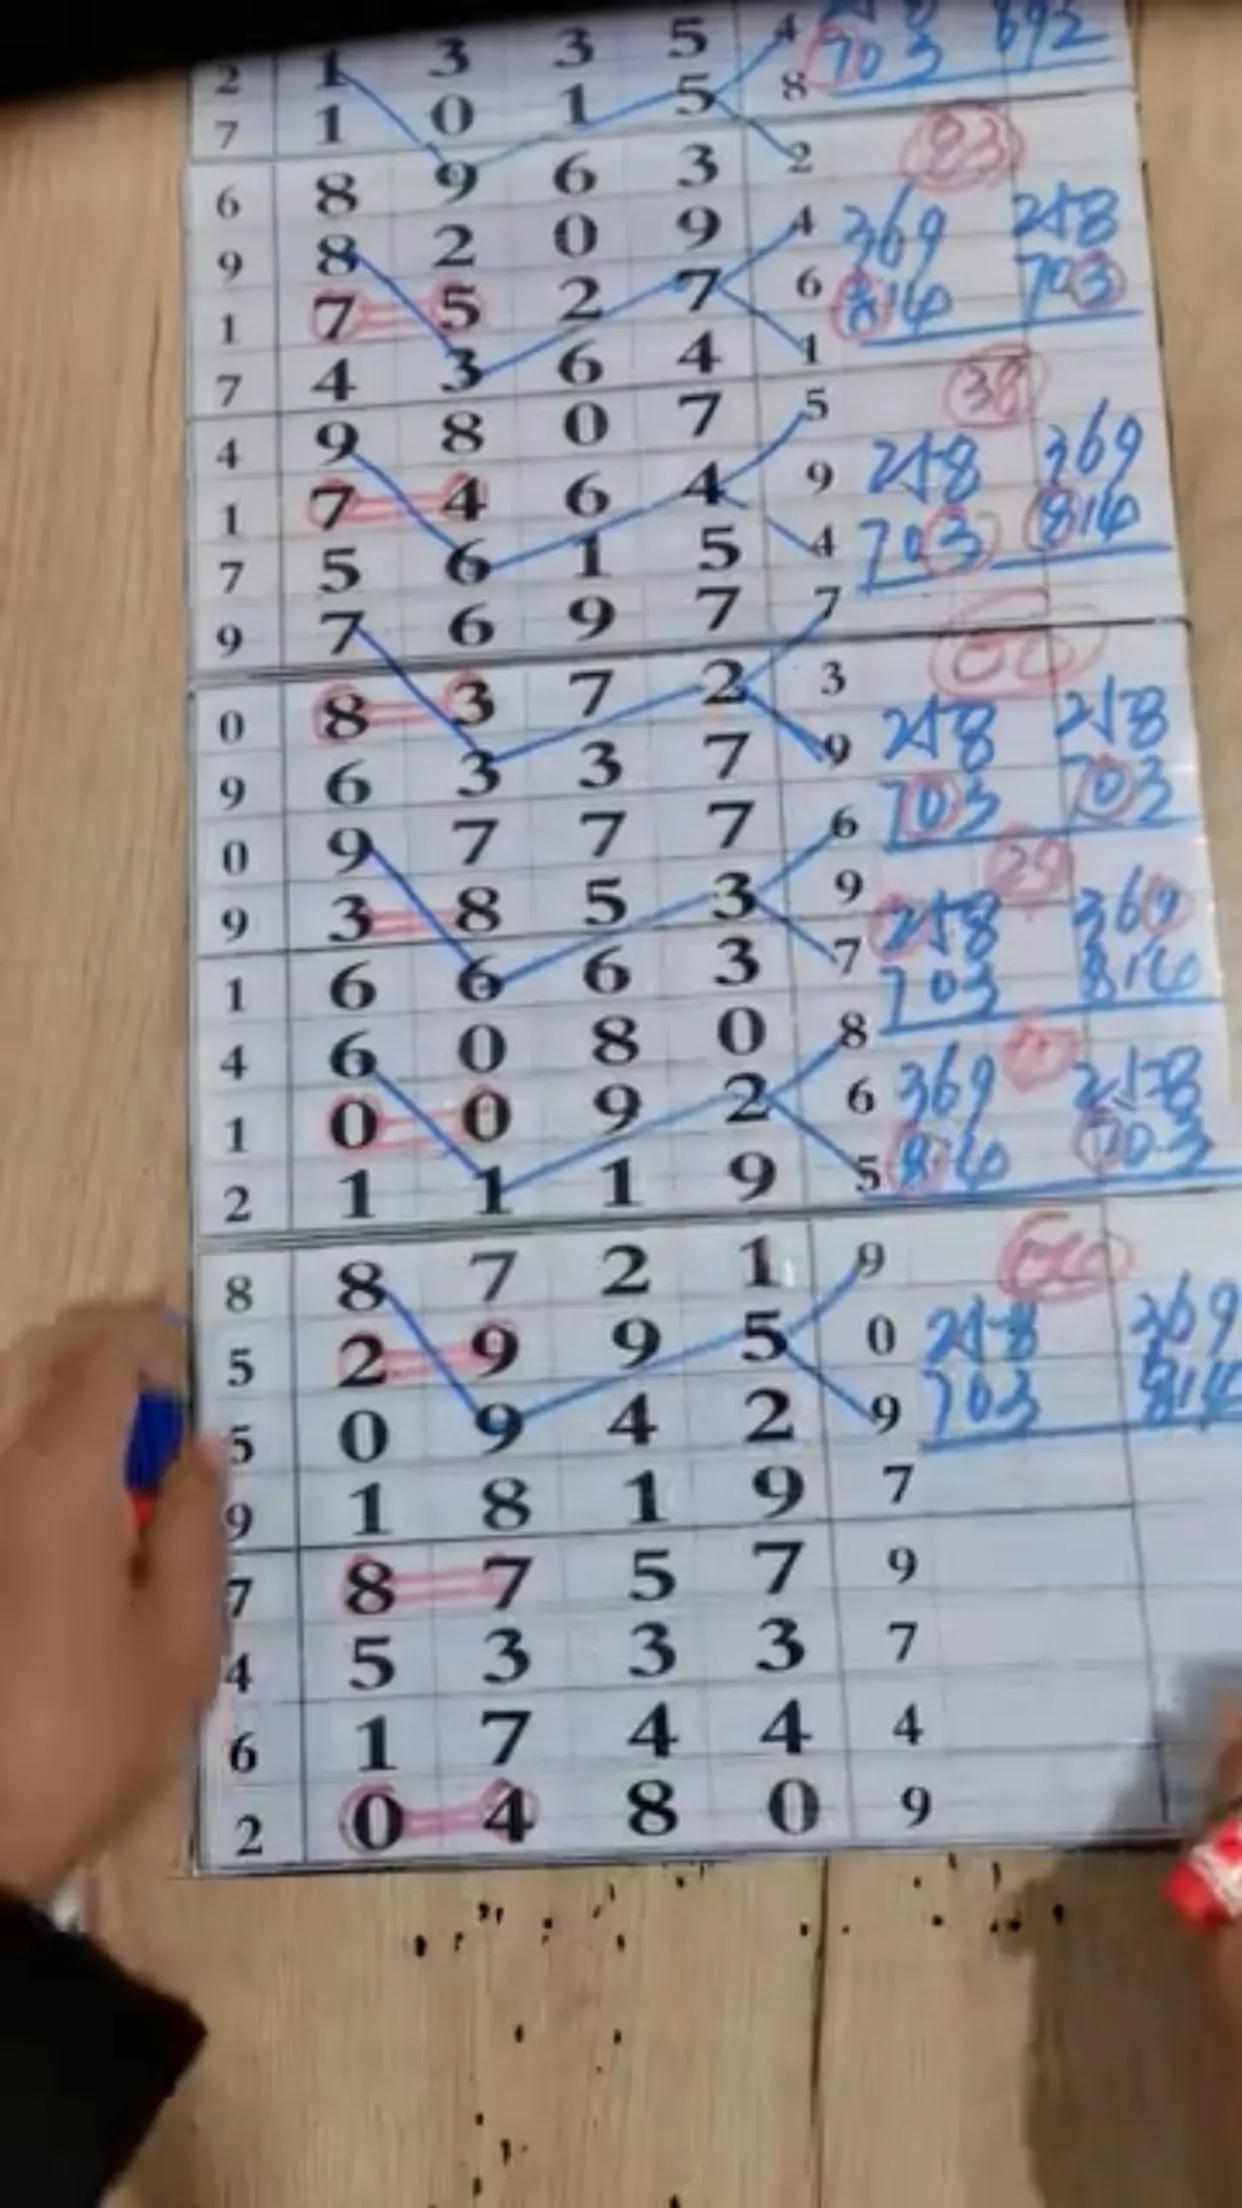 2 1 3 3 5 4 703 692
7 1 0 1 5 8
6 8 9 6 3 2 83
9 8 2 0 9 4 369 258
1 7 5 2 7 6 814 703
7 4 3 6 4 1
4 9 8 0 7 5 38
1 7 4 6 4 9 258 369
7 5 6 1 5 4 703 814
9 7 6 9 7 7
0 8 3 7 2 3 00
9 6 3 3 7 9 258 258
0 9 7 7 7 6 703 703
9 3 8 5 3 9 29
1 6 6 6 3 7 258 369
703 814
4 6 0 8 0 8
1 0 0 9 2 6 369 258
2 1 1 1 9 5 814 703
8 8 7 2 1 9
5 2 9 9 5 0 258 369
5 0 9 4 2 9 703 814
9 1 8 1 9 7
7 8 7 5 7 9
4 5 3 3 3 7
6 1 7 4 4 4
2 0 4 8 0 9